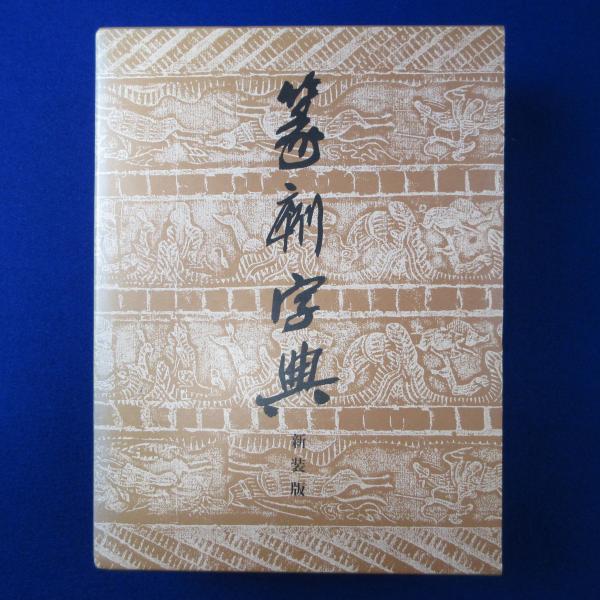 篆刻字典
新装版